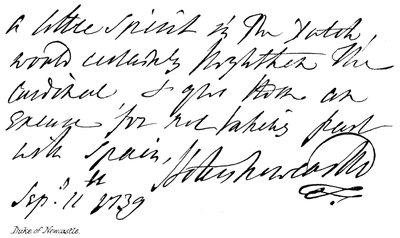 a little Spirit in The Dutch,
would certainly frighten The
Cardinal & give Them an
Excuse, for not taking part
with Spain,
Holles Newcastle
Sep.r 11th 1739
Duke of Newcastle.